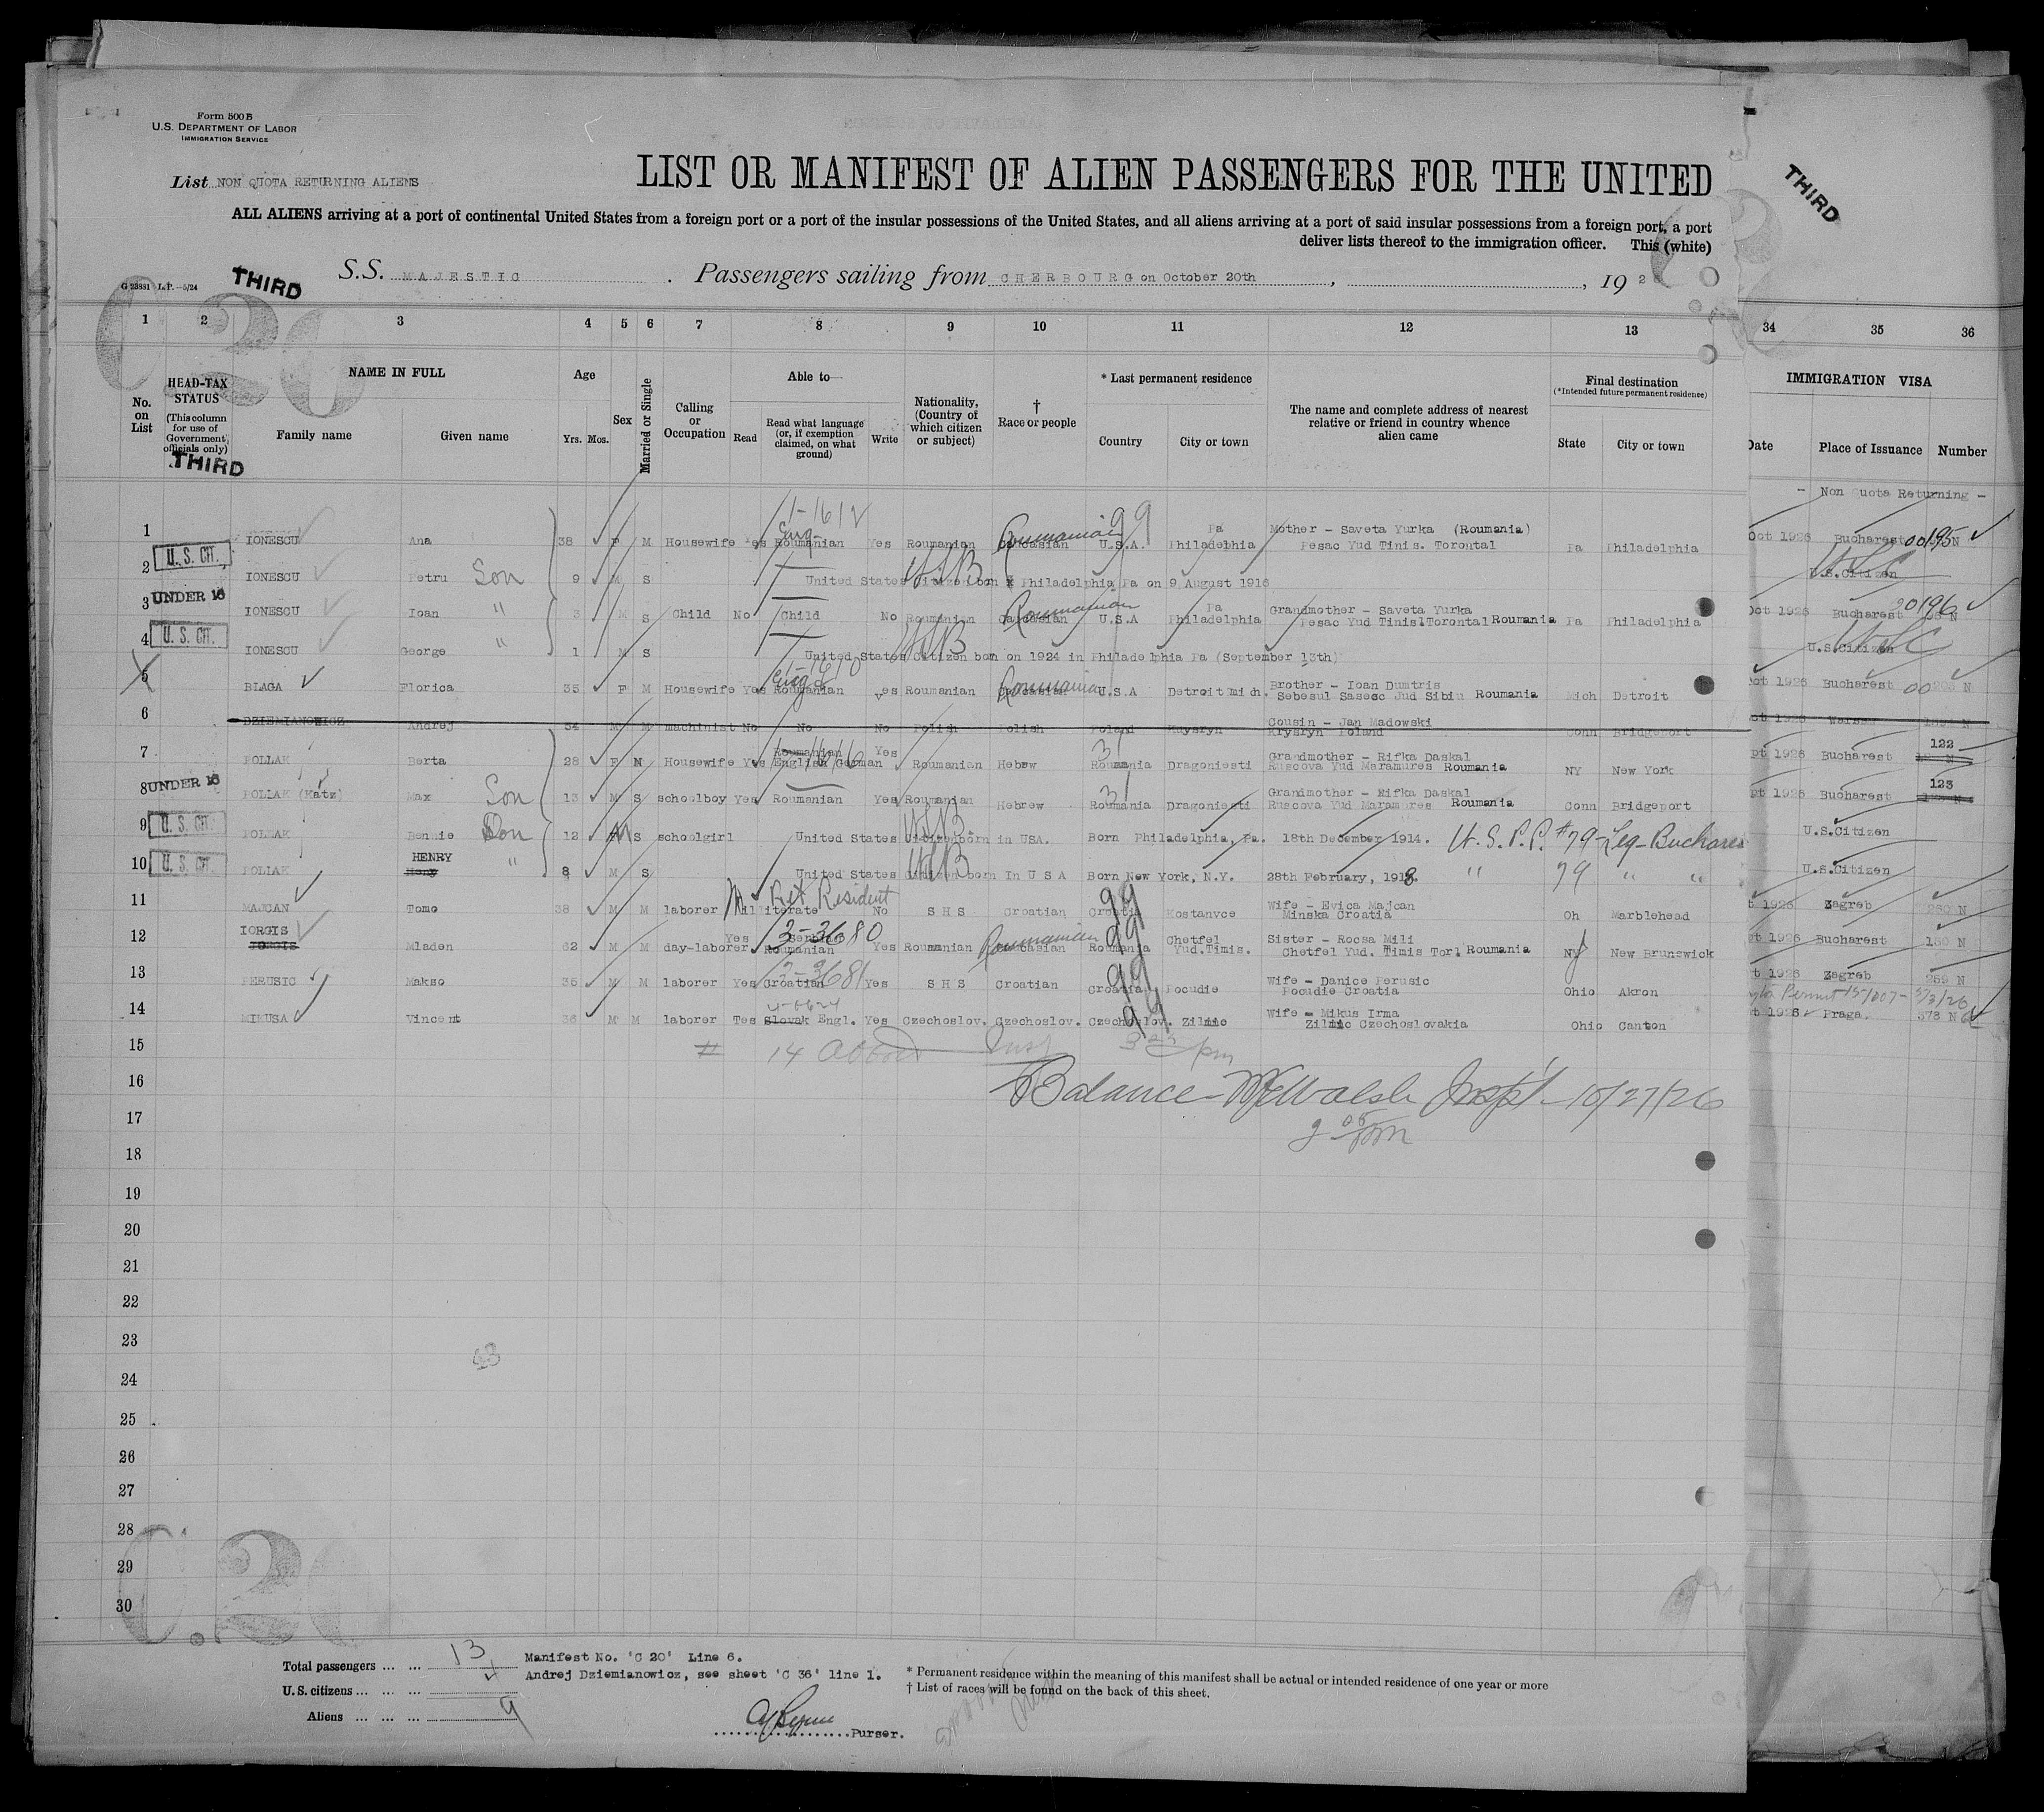 Form 500 B
U.S. DEPARTMENT OF LABOR
IMMIGRATION SERVICE
List NON QUOTA RETURNING ALIENS
LIST OR MANIFEST OF ALIEN PASSENGERS FOR THE UNITED
THIRD
ALL ALIENS arriving at a port of continental United States from a foreign port or a port of the insular possessions of the United States, and all aliens arriving at a port of said insular possessions from a foreign port, a port
deliver lists thereof to the immigration officer. This (white)
THIRD
S.S. MAJESTIC . Passengers sailing from CHERBOURG on October 20th , , 19 2
1 2 3 4 5 6 7 8 9 10 11 12 13 34 35 36
No. on List
HEAD-TAX STATUS
(This column for use of Government officials only)
THIRD
NAME IN FULL
Family name Given name
Age
Yrs. Mos.
Sex
Married or Single
Calling or Occupation
Able to—
Read
Read what language (or, if exemption claimed, on what ground)
Write
Nationality, (Country of which citizen or subject)
† Race or people
* Last permanent residence
Country City or town
The name and complete address of nearest relative or friend in country whence alien came
Final destination
(*Intended future permanent residence)
State City or town
IMMIGRATION VISA
Date Place of Issuance Number
- Non Quota Returning -
1-1612 99
Eng- Roumanian Pa Mother - Saveta Yurka (Roumania)
1 IONESCU Ana 38 F M Housewife Yes Roumanian Yes Roumanian U.S.A. Philadelphia Pesac Yud Tinis. Torontal Pa Philadelphia Oct 1926 Bucharest 00195 N
U.S. CIT. USB
2 IONESCU Petru Son 9 M S United States Citizen born Philadelphia Pa on 9 August 1916 U.S.Citizen
UNDER 16 Roumanian Pa Grandmother - Saveta Yurka
3 IONESCU Ioan " 3 M S Child No Child No Roumanian U.S.A Philadelphia Pesac Yud Tinis Torontal Roumania Pa Philadelphia Oct 1926 Bucharest
U.S. CIT. USB
4 IONESCU George " 1 M S United States Citizen born on 1924 in Philadelphia Pa (September 13th) U.S.Citizen
1-1610
Eng & Roumanian Brother - Ioan Dumtris
5 BLAGA Florica 35 F M Housewife Yes Roumanian Yes Roumanian U.S.A Detroit mich. Sebesul Sasesc Jud Sibiu Roumania Mich Detroit Oct 1926 Bucharest
Cousin - Jan Madowski
6 DZIEMIANOWICZ Andrej 34 M M machinist No No No Polish Polish Poland Krysryn Poland Conn Bridgeport Oct 1926 Warsaw
Roumanian Yes 31 Grandmother - Rifka Daskal 122
7 POLLAK Berta 28 F M Housewife Yes English German Roumanian Hebrew Roumania Dragoniesti Ruscova Yud Maramures Roumania NY New York 1926 Bucharest
UNDER 16 31 Grandmother - Rifka Daskal 123
8 POLLAK (Katz) Max Son 13 M S schoolboy Yes Roumanian Yes Roumanian Hebrew Roumania Dragoniesti Ruscova Yud Maramures Roumania Conn Bridgeport 1926 Bucharest
U.S. CIT. USB
9 POLLAK Bennie Son 12 M S schoolgirl United States Citizen born in USA. Born Philadelphia, Pa. 18th December 1914. U.S.P.P. #79 - Leg - Bucharest U.S.Citizen
U.S. CIT. HENRY USB
10 POLLAK Heny " 8 M S United States Citizen born In U S A Born New York, N.Y. 28th February, 1918. " 79 " " U.S.Citizen
Ret Resident 99 Wife - Evica Majcan
11 MAJCAN Tomo 38 M M laborer Illiterate No S H S Croatian Croatia Kostanvce Minska Croatia Oh Marblehead 1926 Zagreb 260 N
IORGIS Yes Serbian 3-3680 Roumanian 99 Chetfel Sister - Rocsa Mili
12 IORGIS Mladen 62 M M day-laborer Roumanian Yes Roumanian Roumania Yud.Timis. Chetfel Yud. Timis Torl Roumania NJ New Brunswick 1926 Bucharest 150 N
3-3681 99 Wife - Danice Perusic
13 PERUSIC Makso 35 M M laborer Yes Croatian Yes S H S Croatian Croatia Pocudie Pocudie Croatia Ohio Akron 1926 Zagreb 259 N
4-6624 99 Wife - Mikus Irma Permit
14 MIKUSA Vincent 36 M M laborer Yes Slovak Engl. Yes Czechoslov. Czechoslov. Czechoslov. Zilinic Czechoslovakia Ohio Canton 1926 Praga. 373 N
15 # 14 Insp 3 pm
16 Balance - Walsh Insp't - 10/27/26
17 9 05 pm
18
19
20
21
22
23
24
25
26
27
28
29
30
Total passengers ... ... 13
U.S. citizens ... ... ...
Aliens ... ... ... 9
Manifest No. 'C 20' Line 6.
Andrej Dziemianowicz, see sheet 'C 36' line 1.
Purser.
* Permanent residence within the meaning of this manifest shall be actual or intended residence of one year or more
† List of races will be found on the back of this sheet.